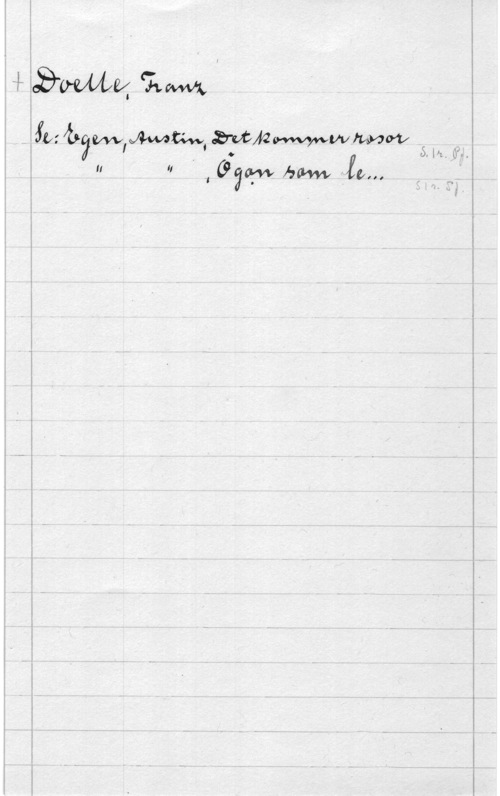 + Doelle, Franz
Se: Egen, Austin, Det kommer rosor S. 1 r. Pf.
" " , Ögon som le... S 1 r. Pf.